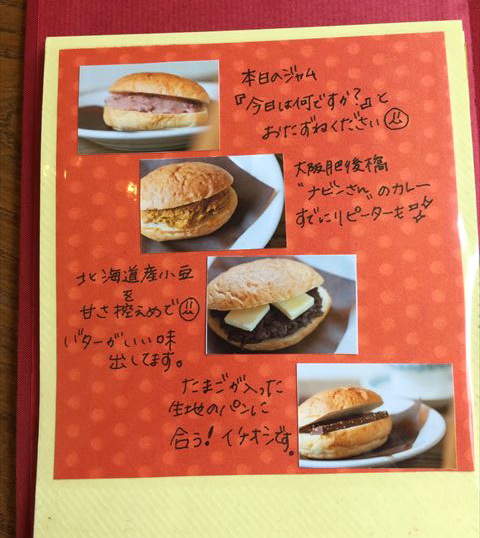 本日のジャム
『今日は何ですか?』と
おたずねください
大阪肥後橋
"ナビンさん"のカレー
すでにリピーターも
北海道産小豆
を
甘さ控えめで
バターがいい味
出してます。
たまごが入った
生地のパンに
合う!イチオシです。